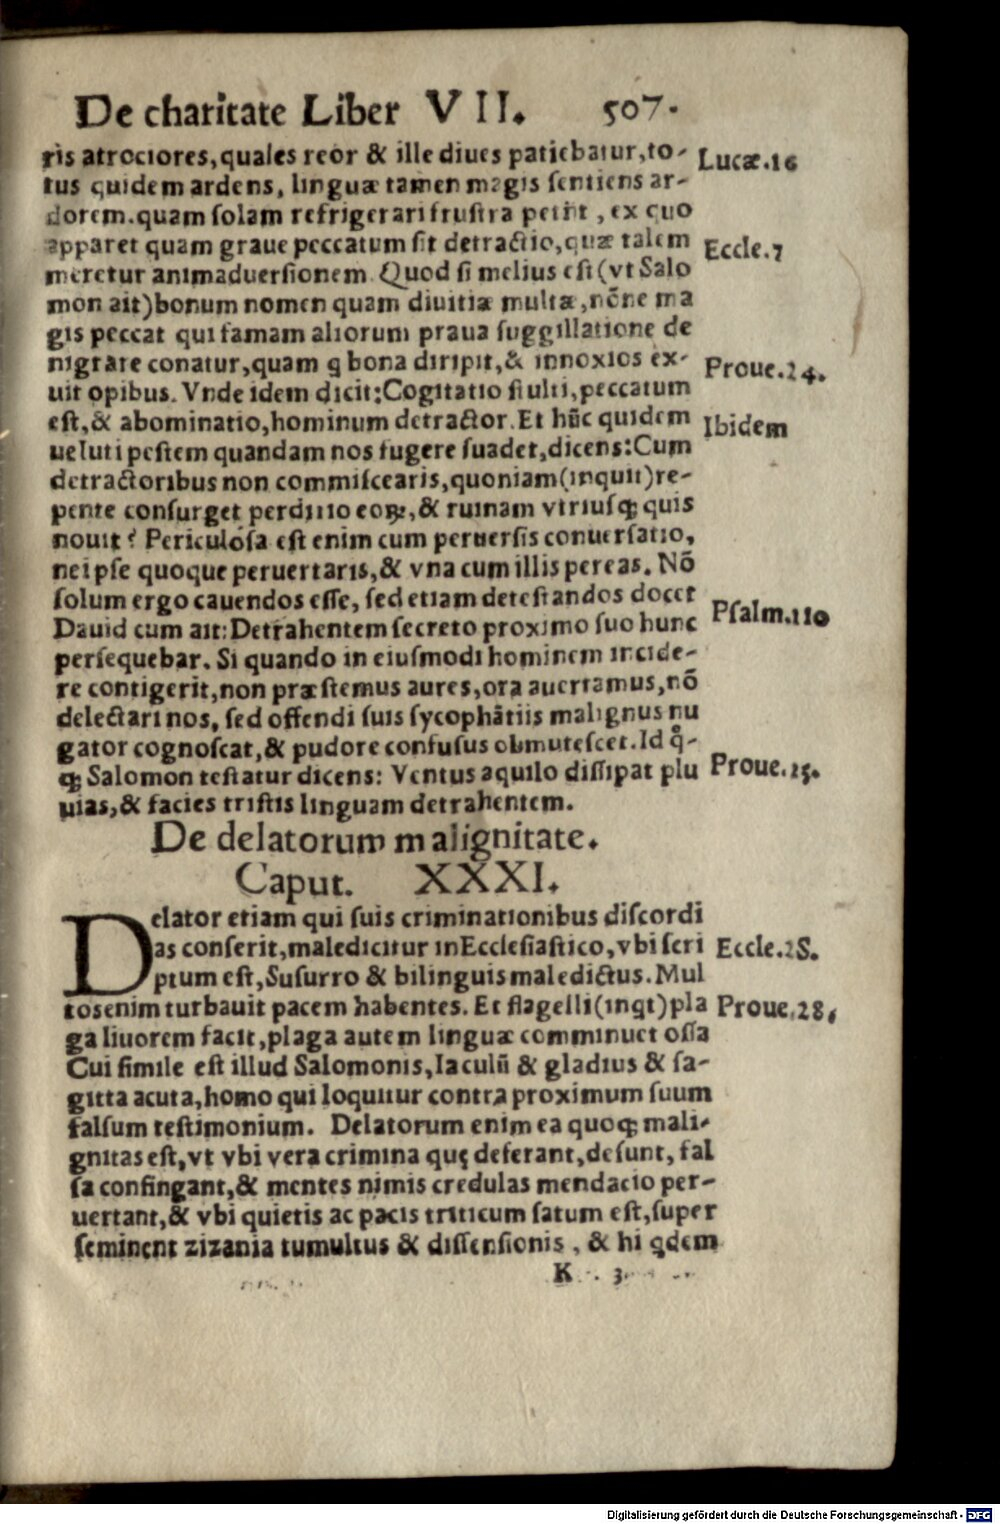 De charitate Liber VII. 507.
ris atrociores, quales reor & ille diues patiebatur, to-
Lucæ. 16
tus quidem ardens, linguæ tamen magis ſentiens ar-
dorem. quam ſolam refrigerari fruſtra petiit, ex quo
apparet quam graue peccatum ſit detractio, quæ talem
Eccle. 7
meretur animaduerſionem. Quod ſi melius eſt (vt Salo
mon ait) bonum nomen quam diuitiæ multæ, nõne ma
gis peccat qui famam aliorum praua ſuggillatione de
nigrare conatur, quam q bona diripit, & innoxios ex-
Proue. 24.
uit opibus. Vnde idem dicit: Cogitatio ſtulti, peccatum
eſt, & abominatio, hominum detractor. Et hũc quidem
Ibidem
ueluti peſtem quandam nos fugere ſuadet, dicens: Cum
detractoribus non commiſcearis, quoniam (inquit) re-
pente conſurget perditio eoꝝ, & ruinam vtriuſqꝫ quis
nouit? Periculoſa eſt enim cum peruerſis conuerſatio,
ne ipſe quoque peruertaris, & vna cum illis pereas. Nõ
ſolum ergo cauendos eſſe, ſed etiam deteſtandos docet
Pſalm. 110
Dauid cum ait: Detrahentem ſecreto proximo ſuo hunc
perſequebar. Si quando in eiuſmodi hominem incide-
re contigerit, non præſtemus aures, ora auertamus, nõ
delectari nos, ſed offendi ſuis ſycophãtiis malignus nu
gator cognoſcat, & pudore confuſus obmuteſcet. Id q̊-
qꝫ Salomon teſtatur dicens: Ventus aquilo diſſipat plu
Proue. 25.
uias, & facies triſtis linguam detrahentem.
De delatorum malignitate.
Caput. XXXI.
Delator etiam qui ſuis criminationibus diſcordi
as conſerit, maledicitur in Eccleſiaſtico, vbi ſcri
Eccle. 28.
ptum eſt, Suſurro & bilinguis maledictus. Mul
tos enim turbauit pacem habentes. Et flagelli (inqt) pla
Proue. 28.
ga liuorem facit, plaga autem linguæ comminuet oſſa
Cui ſimile eſt illud Salomonis, Iaculũ & gladius & ſa-
gitta acuta, homo qui loquitur contra proximum ſuum
falſum teſtimonium. Delatorum enim ea quoqꝫ mali-
gnitas eſt, vt vbi vera crimina quę deferant, deſunt, fal
ſa confingant, & mentes nimis credulas mendacio per-
uertant, & vbi quietis ac pacis triticum ſatum eſt, ſuper
ſeminent zizania tumultus & diſſenſionis, & hi qdem
K 3
Digitalisierung gefördert durch die Deutsche Forschungsgemeinschaft - DFG